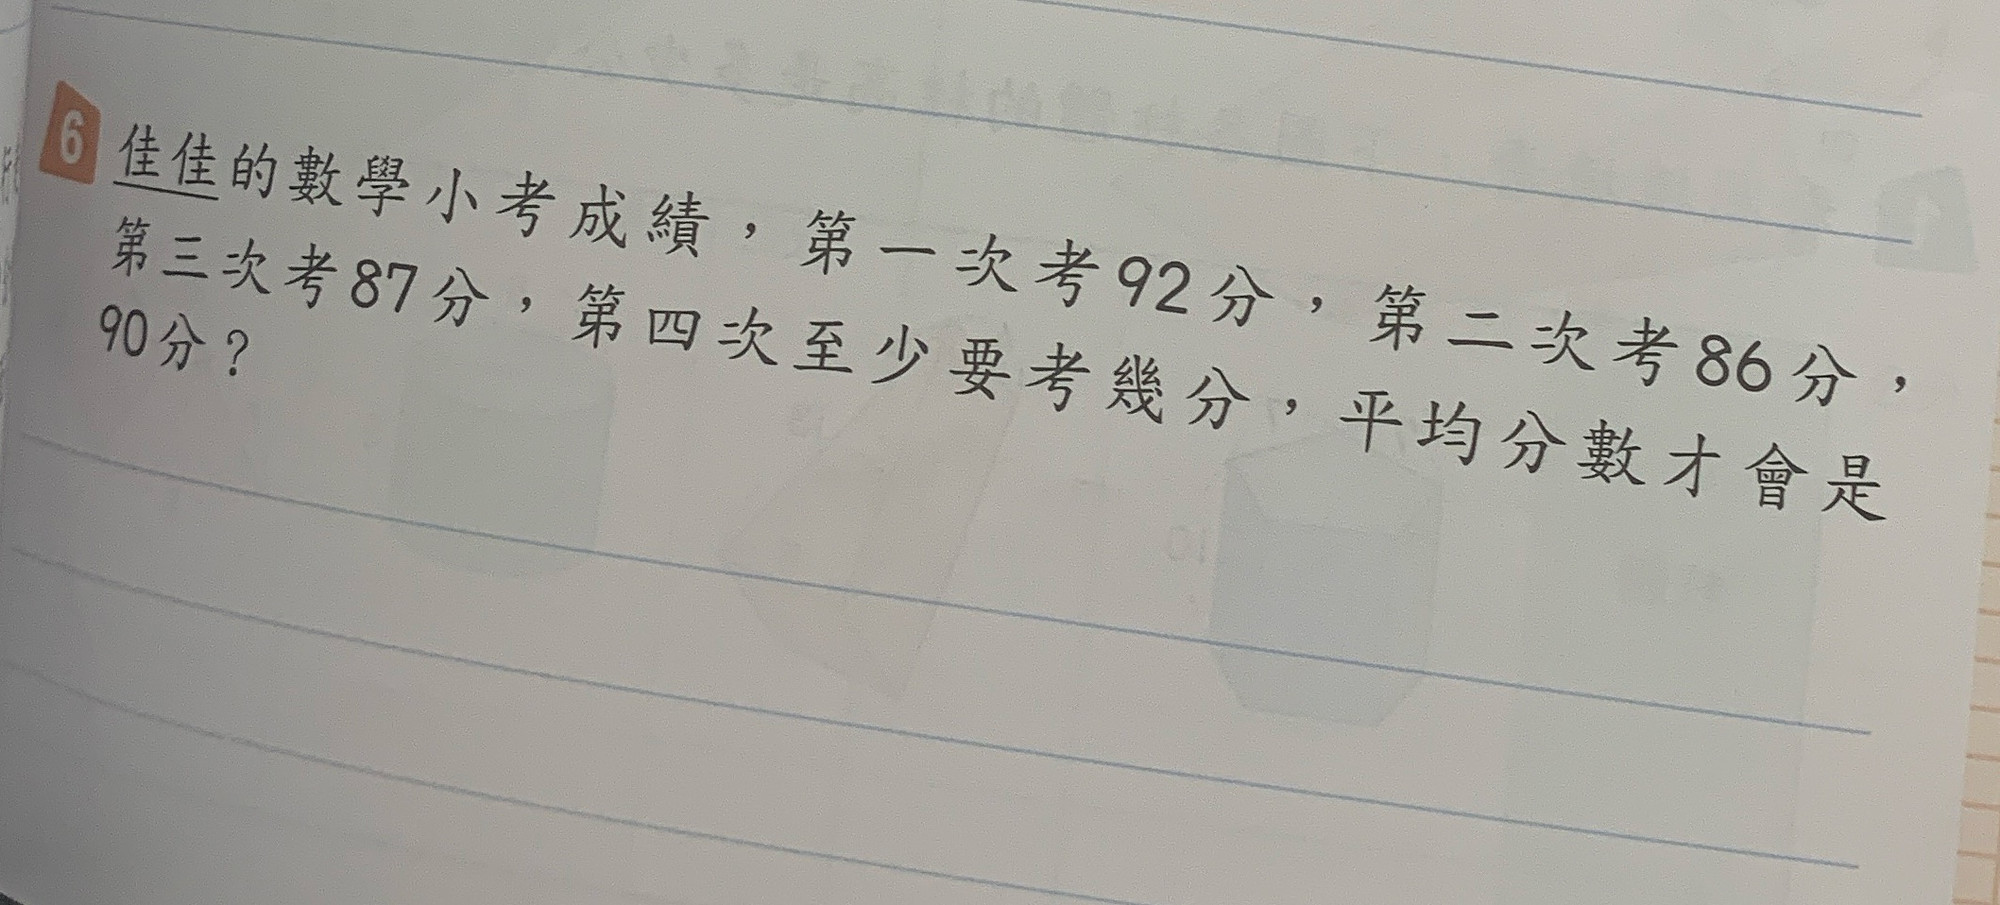 6 佳佳的數學小考成績，第一次考92分，第二次考86分，
第三次考87分，第四次至少要考幾分，平均分數才會是
90分？